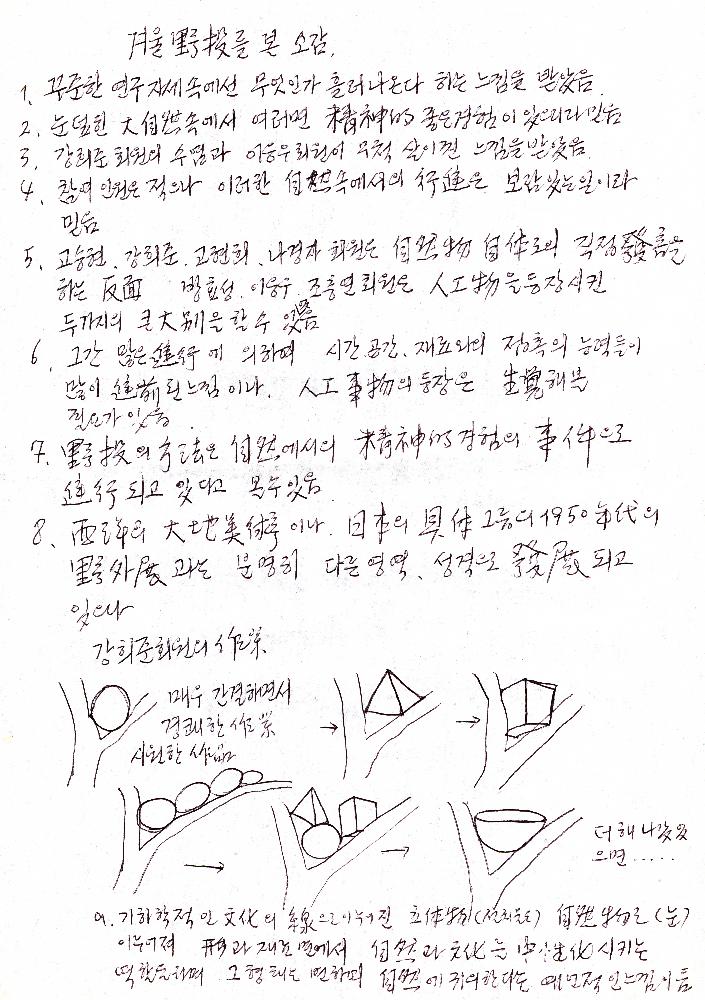 겨울 野投를 본 소감.
1. 꾸준한 연구자세속에선 무엇인가 흘러나온다 하는 느낌을 받았음.
2. 눈덮힌 大自然속에서 여러면 精神的 좋은경험이 있으리라믿음
3. 강희준 회원의 수평과 이응우회원이 무척 살이찐 느낌을 받았음.
4. 참여 인원은 적으나 이러한 自然속에서의 行進은 보람있는일이라
믿음
5. 고승현, 강희준, 고현희, 나경자 회원은 自然物 自体로의 직정發言을
하는 反面 방효성, 이응우, 조충연회원은 人工物을등장시킨
두가지의 큰大別을 할 수 있음
6. 그간 많은進行에 의하며 시간, 공간, 재료와의 능력들이
많이 進前된느낌이나. 人工事物의등장은 生覺해볼
필요가있음.
7. 野投의 方法은 自然에서의 精神的경험의 事件으로
進行되고 있다고 볼수있음.
8. 西洋의 大地美術이나. 日本의 具体그룹의 1950年代의
野外展과는 분명히 다른영역, 성격으로 發展되고
있으나
강희준회원의 作業
매우 간결하면서
경쾌한作業
시원한 作品
더해나갔었
으면.....
a. 기하학적인 文化의 線으로이루어진 立体物 自然物로(눈)
이루어져 形과 재료면에서 自然과文化를 中性化시키는
역할을하며 그형태도 변하며 自然에 귀의한다는 느낌이듬